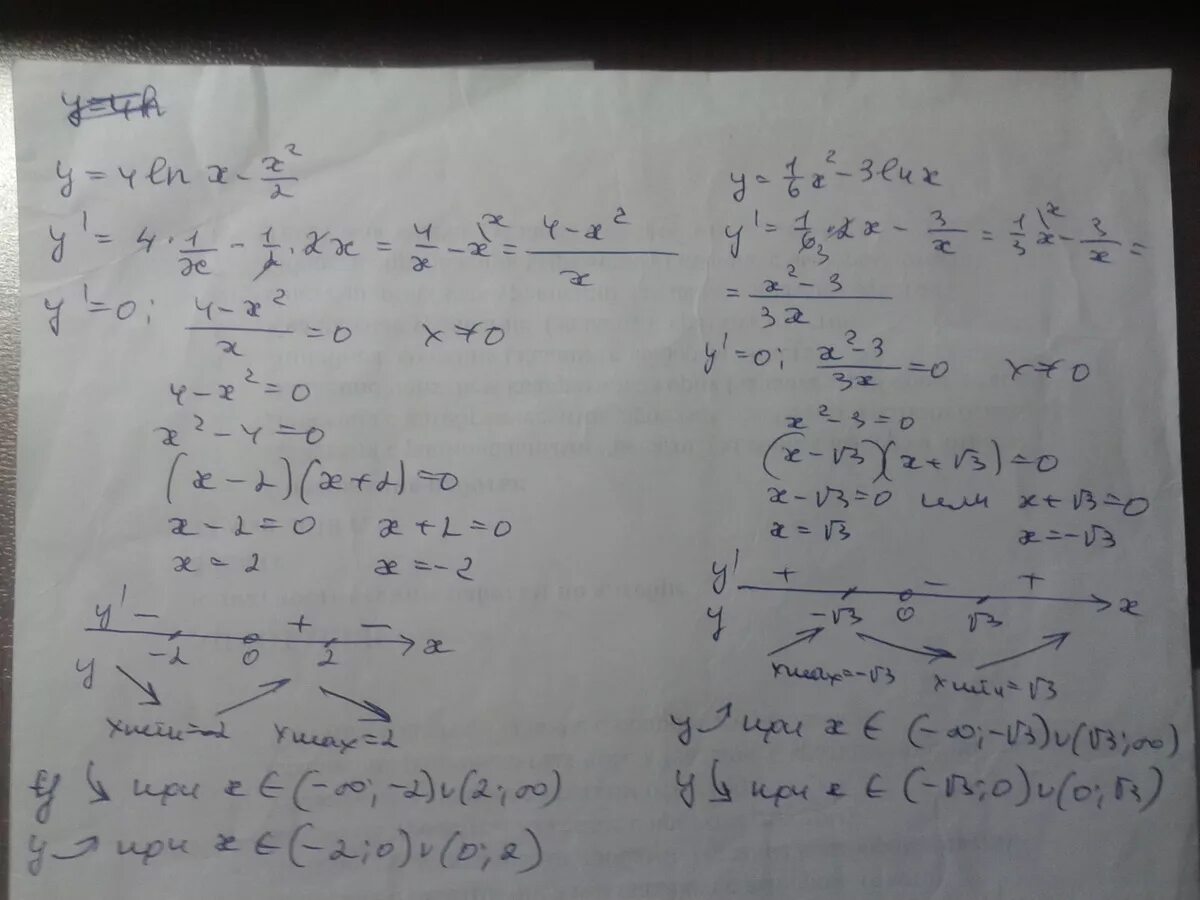 y = 4 ln x - x²/2
y' = 4 · 1/x - 1/2 · 2x = 4/x - x\ˣ = (4-x²)/x
y' = 0; (4-x²)/x = 0 x ≠ 0
4 - x² = 0
x² - 4 = 0
(x - 2)(x + 2) = 0
x - 2 = 0 x + 2 = 0
x = 2 x = -2
y' - + - x
-2 0 2
y
xmin=-2 xmax=2
y ↘ при x ∈ (-∞; -2)∪(2; ∞)
y ↗ при x ∈ (-2; 0)∪(0; 2)
y = 1/6 x² - 3 ln x
y' = 1/6 · 2x - 3/x = 1/3 x\ˣ - 3/x =
3
= (x² - 3)/3x
y' = 0; (x²-3)/3x = 0 x ≠ 0
x² - 3 = 0
(x - √3)(x + √3) = 0
x - √3 = 0 или x + √3 = 0
x = √3 x = -√3
y' + - + x
y -√3 0 √3
xmax=-√3 xmin=√3
y ↗ при x ∈ (-∞; -√3)∪(√3; ∞)
y ↘ при x ∈ (-√3; 0)∪(0; √3)